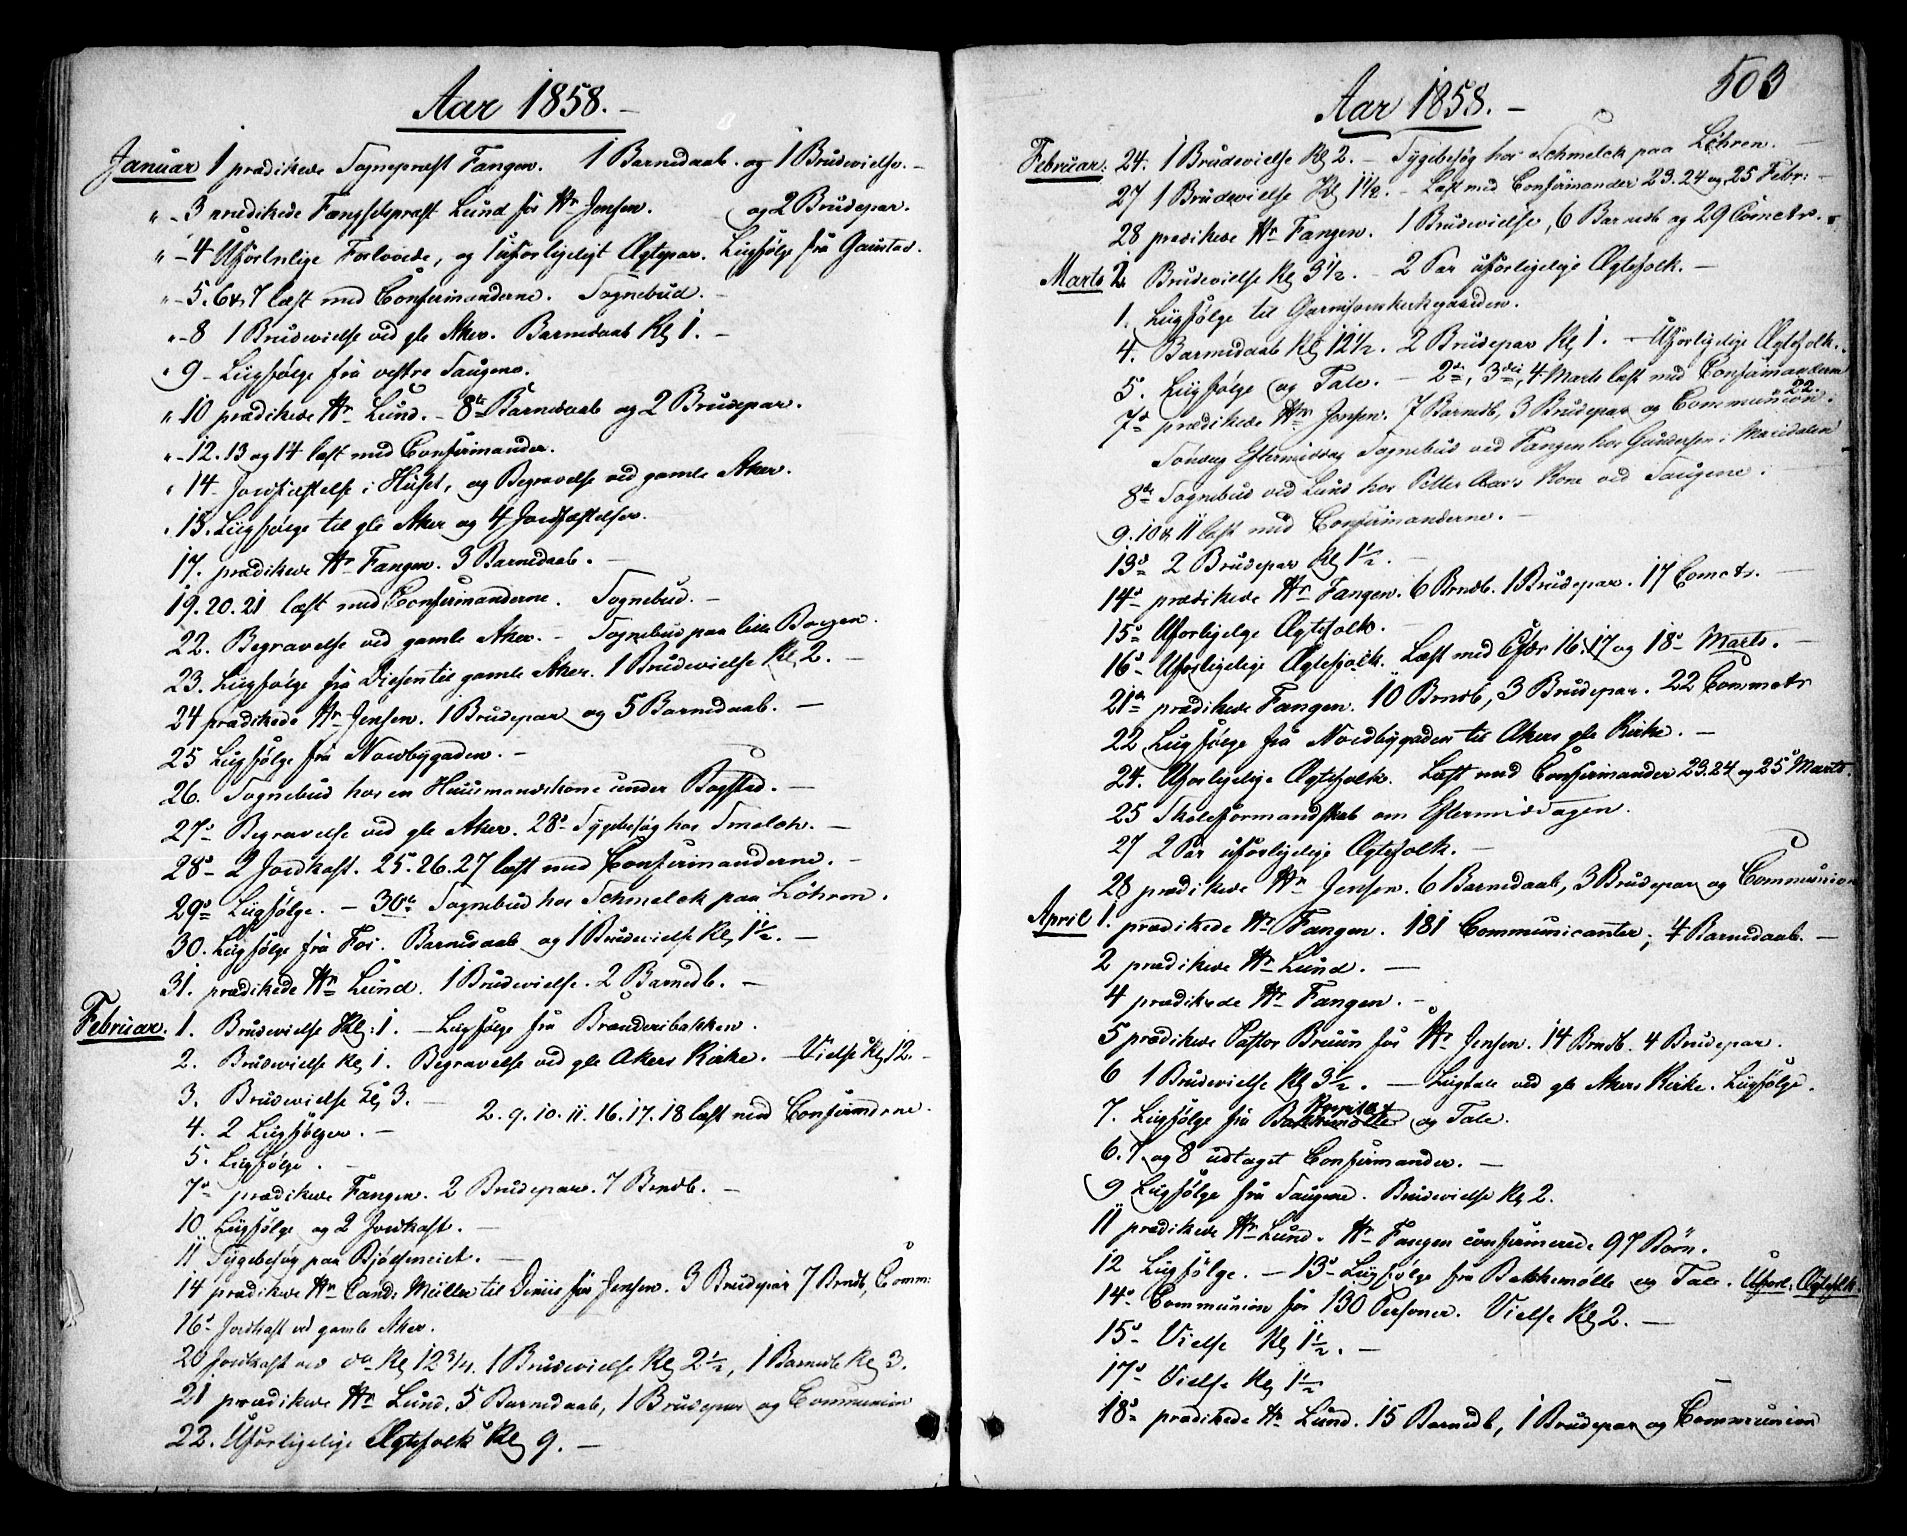 Aar 1858.-
Januar 1 prædikede Sognepræst Fangen. 1 Barnedaab. og 1 Brudevielse.-
" - 3 prædikede Fængselspræst Lund for Hr Jensen. og 2 Brudepar.
" - 4 Uforligelige Forlovede, og 1 uforligeligt Ægtepar. Liigfølge fra Gaustad.
" - 5. 6 & 7 læst med Confirmanderne. Sognebud.-
" - 8 1 Brudevielse ved gle Aker. Barnedaab Kl 1.-
" 9 - Liigfølge fra vestre Saugene.
" 10 prædikede Hr Lund.- 8te Barnedaab og 2 Brudepar.
" - 12. 13 og 14 læst med Confirmander.
" 14. Jordfæstelse i Huset, og Begravelse ved gamle Aker.
" 15. Liigfølge til gle Aker og 4 Jordfæstelser.
17. prædikede Hr Fangen. 3 Barnedaab.-
19. 20. 21 læst med Confirmanderne. Sognebud.-
22. Begravelse ved gamle Aker.- Sognebud paa lille
23. Liigfølge fra Diesen til gamle Aker. 1 Brudevielse Kl 2.-
24 prædikede Hr Jensen. 1 Brudepar og 5 Barnedaab.-
25 Liigfølge fra Nordbygaden.-
26. Sognebud hos en Huusmandskone under Bogstad.-
27de Begravelse ved gle Aker. 28de Sygebesøg hos Smelck.-
28de 2 Jordkast. 25. 26. 27 læst med Confirmanderne.-
29de Liigfølge.- 30te Sognebud hos Schmelck paa Löhren.
30. Liigfølge fra Foi. Barnedaab og 1 Brudevielse Kl 1 1/2.-
31. prædikede Hr Lund. 1 Brudevielse. 2 Barnedb.-
Februar. 1. Brudevielse Kl: 1.- Liigfølge fra
2. Brudevielse Kl 1. Begravelse ved gle Akers Kirke.- Vielse Kl 12.-
3. Brudevielse Kl 3.- 2. 9. 10. 11. 16. 17. 18 læst med Confirmderne.
4. 2 Liigfølger.-
5. Liigfølge.-
7de prædikede Fangen. 2 Brudepar. 7 Brndb.-
10 Liigfølge og 2 Jordkast.-
11 Sygebesøg paa Bjølseneiet.-
14 prædikede Hr Cand: Müller til Dimis for Jensen. 3 Brudepar 7 Brndb, Comm:
16de Jordkast ved gamle Aker.
20 Jordkast ved do Kl 12 3/4. 1 Brudevielse Kl 2 1/2, 1 Barnedb Kl 3.
21 prædikede Hr Lund. 5 Barnedaab, 1 Brudepar og Communion
22. Uforligelige Ægtefolk Kl 9.-
503
Aar 1858.-
Februar: 24. 1 Brudevielse Kl 2.- Sygebesøg hos Schmelck paa Löhren.-
27 1 Brudevielse Kl 1 1/2.- Læst med Confirmander 23. 24 og 25 Febr:-
28 prædikede Hr Fangen. 1 Brudevielse, 6 Barnedb og 29 Comcts.
Marts 2. Brudevielse Kl 3 1/2.- 2 Par uforligelige Ægtefolk.-
1. Liigfølge til Garnisonskirkegaarden.
4. Barnedaab Kl 12 1/2. 2 Brudepar Kl 1.- Uforligelige Ægtefolk.
5. Liigfølge og Tale.- 2den, 3die, 4 Marts læst med Confirmanderne
7de prædikede Hr Jensen. 7 Barndb, 3 Brudepar og Communion: 22.
Søndag Eftermiddag Sognebud ved Fangen hos Gundersen i Maridalen
8de Sognebud ved Lund hos Petter Kone ved Saugene.
9. 10 & 11 læst med Confirmanderne.-
13de 2 Brudepar Kl 1 1/2.-
14de prædikede Hr Fangen. 6 Brndb. 1 Brudepar. 17 Comcts.-
15de Uforligelge Ægtefolk.-
16de Uforligelige Ægtefolk. Læst med 16. 17 og 18de Marts.-
21de prædikede Fangen. 10 Brndb, 3 Brudepar. 22 Commcts
22 Liigfølge fra Nordbygaden til Akers gle Kirke.-
24. Uforligelige Ægtefolk. Læst med Confirmander 23. 24 og 25 Marts.
25 Skoleformandskab om Eftermiddagen.
27 2 Par uforligelige Ægtefolk.-
28 prædikede Hr Jensen. 6 Barnedaab, 3 Brudepar og Communion
April 1. prædikede Hr Fangen. 181 Communicanter; 4 Barnedaab.-
2 prædikede Hr Lund.-
4 prædikede Hr Fangen.-
5 prædikede Pastor Bruun for Hr Jensen. 14 Brndb. 4 Brudepar.
6 1 Brudevielse Kl 3 1/2.- Liigtale ved gle Akers Kirke. Liigfølge.
7. Liigfølge fra og Tale.
6. 7 og 8 udtaget Confirmander.-
9 Liigfølge fra Saugene. Brudevielse Kl 2.
11 prædikede Hr Lund. Hr Fangen confirmerede 97 Børn.
12 Liigfølge.- 13de Liigfølge fra Bakkemølle og Tale. Uforl: Ægtefolk.
14de Communion for 130 Personer. Vielse Kl 2.-
15de Vielse Kl 1 1/2.-
17de Vielse Kl 1 1/2
18de prædikede Hr Lund. 15 Barnedb, 1 Brudepar og Communion